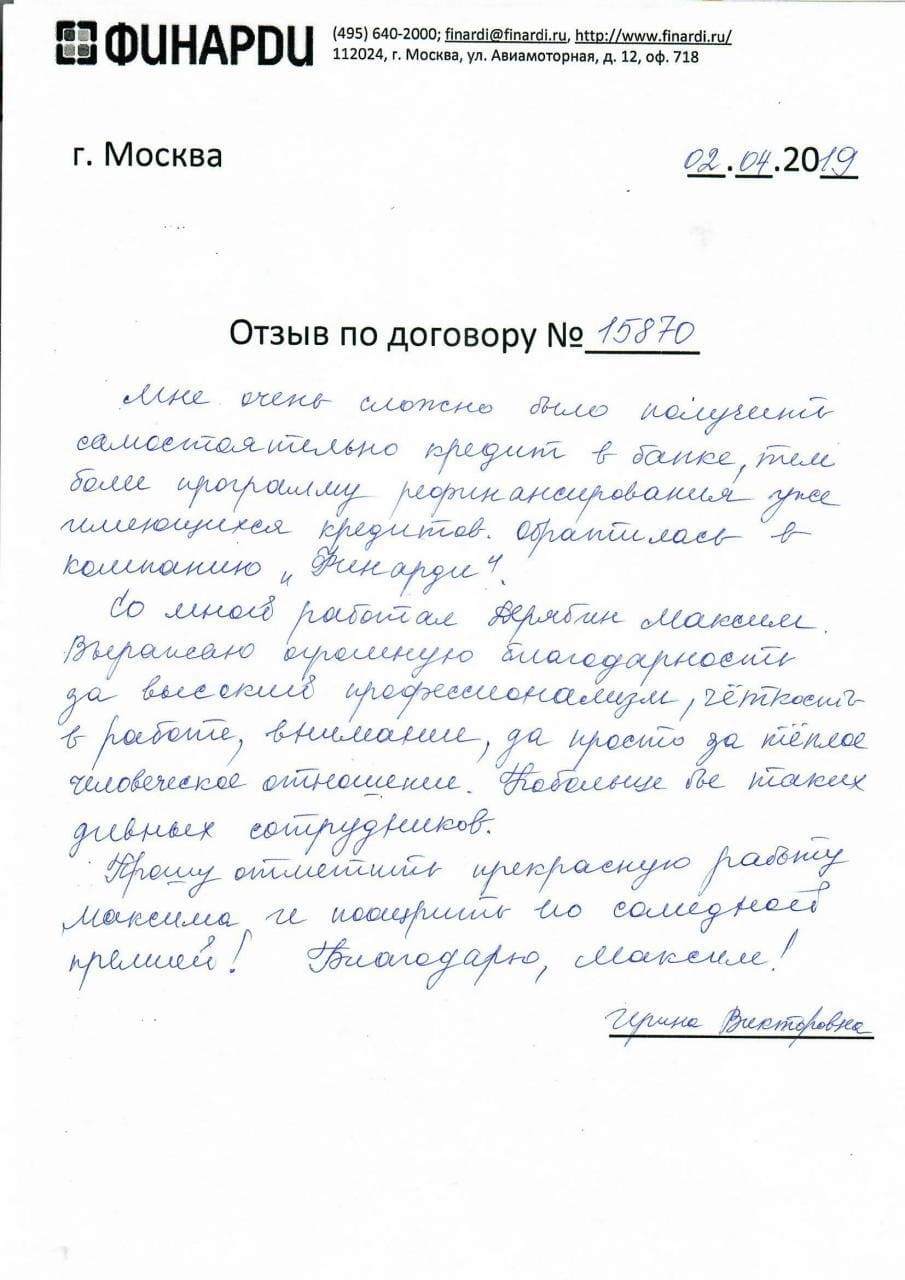 ФИНАРДИ
(495) 640-2000; finardi@finardi.ru, http://www.finardi.ru/
112024, г. Москва, ул. Авиамоторная, д. 12, оф. 718
г. Москва
02.04.2019
Отзыв по договору № 15870
Мне очень сложно было получить
самостоятельно кредит в банке, тем
более программу рефинансирования уже
имеющихся кредитов. Обратилась в
компанию „Финарди“.
Со мной работал Дерябин Максим.
Выражаю огромную благодарность
за высокий профессионализм, чёткость
в работе, внимание, да просто за тёплое
человеческое отношение. Побольше бы таких
дивных сотрудников.
Прошу отметить прекрасную работу
Максима и поощрить его солидной
премией! Благодарю, Максим!
Ирина Викторовна